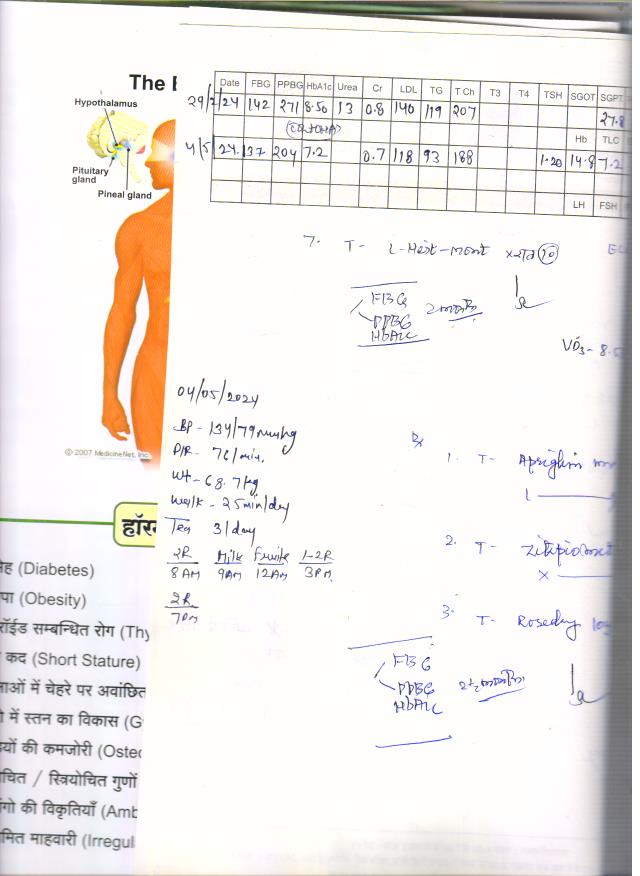 The E
Hypothalamus
Pituitary
gland
Pineal gland
© 2007 MedicineNet, Inc.
हॉर
ह (Diabetes)
पा (Obesity)
रॉईड सम्बन्धित रोग (Thy
कद (Short Stature)
नाओं में चेहरे पर अवांछित
में स्तन का विकास (G
यों की कमजोरी (Osteo
चित / स्त्रियोचित गुणों
ंगो की विकृतियाँ (Amb
मित माहवारी (Irregul
Date FBG PPBG HbA1c Urea Cr LDL TG T Ch T3 T4 TSH SGOT SGPT
29/2/24 142 271 8.50 13 0.8 140 119 207 27.8
Hb TLC
4/5/24 137 204 7.2 0.7 118 93 188 1.20 14.8 7.2
LH FSH
7. T- L-Hist-Mont x रात 10
FBG
PPBG
HbA1c
2 months
VD3- 8.5
04/05/2024
BP - 134/79mmhg
P/R - 76/min.
Wt - 68.7kg
Walk - 25min/day
Tea 3/day
2R Milk Fruits 1-2R
8 AM 9AM 12AM 3PM
2R
7PM
Rx
1. T-
2. T-
3. T- Roseday 10
FBG
PPBG
HbA1c
2½ months